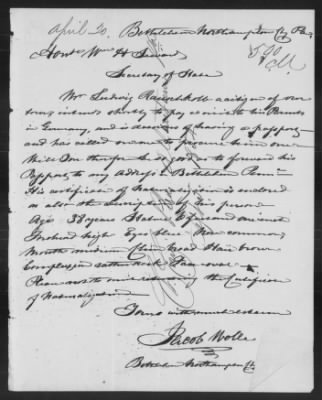 April 20. Bethlehem Northampton Cy Pa.
Honble Wm H Seward 5.00
Secretary of State
Mr Ludwig Rauschkolb a citizen of our
town, intends shortly to pay a visit to his Parents
in Germany, and is desirous of having a passport
and has called on me to procure him one
Will you therefore be so good as to forward his
Passport to my address Bethlehem Penna
His certificate of Naturalization is enclosed
as also the description of his person
Age 38 years Stature 5 feet and one inch
Forehead high Eyes blue Nose common
Mouth medium Chin broad Hair brown
Complexion rather dark Face oval
Please not to omit returning the Certificate
of Naturalization
Yours with much esteem
Jacob Wolle
Bethlehem Northampton Cy